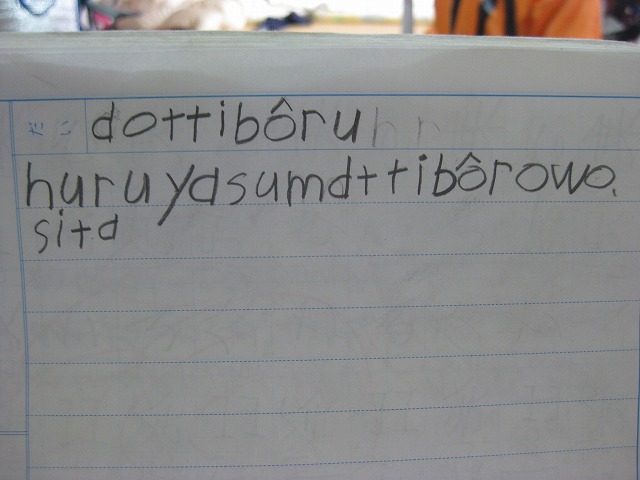 dottibôru
huruyasumdttibôrowo.
sita